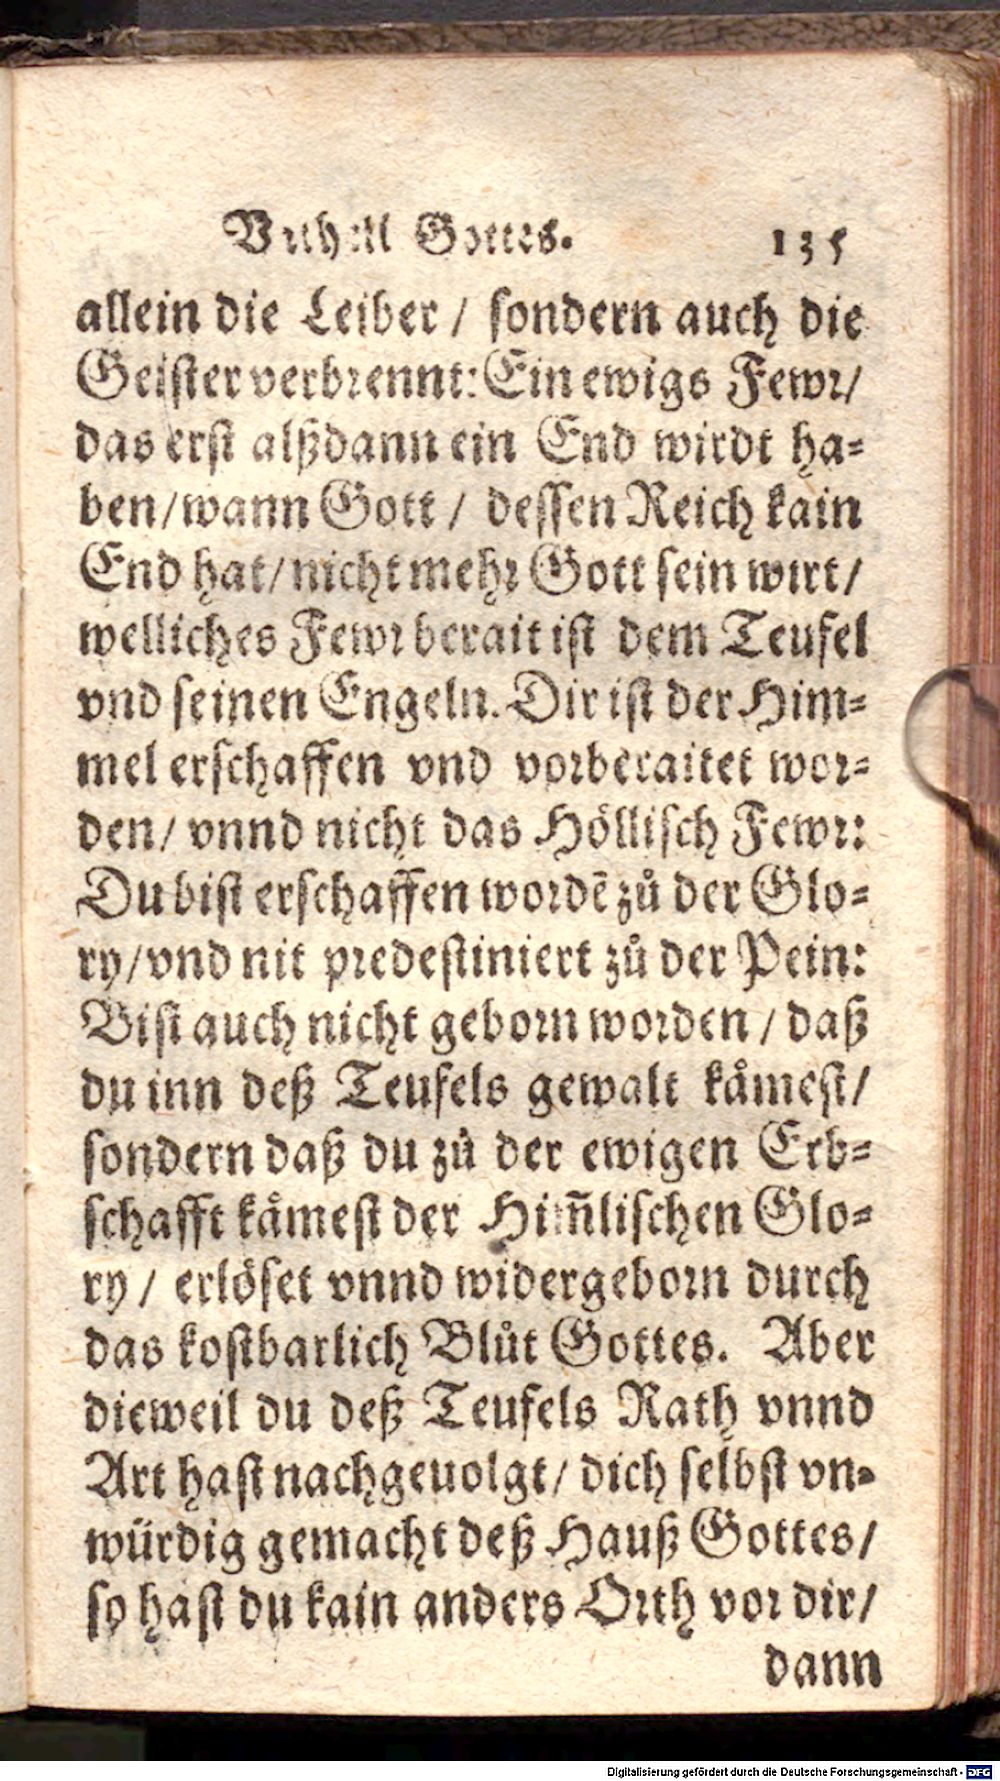 Vrthail Gottes. 135
allein die Leiber / sondern auch die
Geister verbrennt: Ein ewigs Fewr/
das erst alßdann ein End wirdt ha-
ben/wann Gott / dessen Reich kain
End hat/nicht mehr Gott sein wirt/
welliches Fewr berait ist dem Teufel
vnd seinen Engeln. Dir ist der Him-
mel erschaffen vnd vorberaitet wor-
den/ vnnd nicht das Höllisch Fewr:
Du bist erschaffen wordẽ zů der Glo-
ry/vnd nit predestiniert zů der Pein:
Bist auch nicht geborn worden / daß
du inn deß Teufels gewalt kåmest/
sondern daß du zů der ewigen Erb-
schafft kåmest der Him̃lischen Glo-
ry / erlöset vnnd widergeborn durch
das kostbarlich Blůt Gottes. Aber
dieweil du deß Teufels Rath vnnd
Art hast nachgeuolgt/ dich selbst vn-
würdig gemacht deß Hauß Gottes/
so hast du kain anders Orth vor dir/
dann
Digitalisierung gefördert durch die Deutsche Forschungsgemeinschaft - DFG